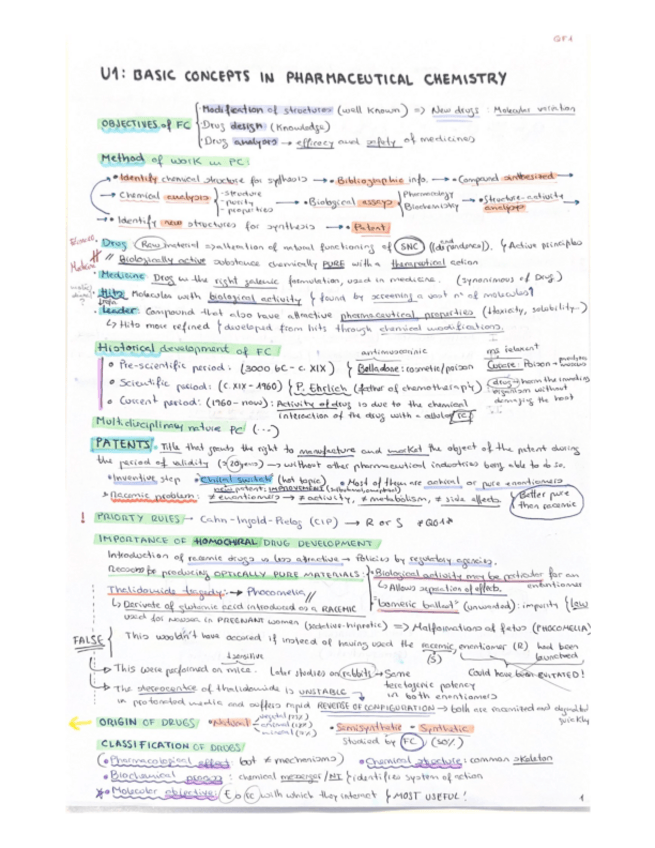 QF1
U1: BASIC CONCEPTS IN PHARMACEUTICAL CHEMISTRY
Modification of structures (well known) => New drugs: Molecular variation
OBJECTIVES of FC · Drug design (Knowledge)
· Drug analyses → efficacy and safety of medicines
Method of work in PC:
• Identify chemical structure for synthesis → • Bibliographic info. → • Compound synthesized →
→ Chemical analysis · structure · purity · properties → • Biological assays Pharmacology Biochemistry → • Structure-activity analysis
→ • Identify new structures for synthesis → • Patent
• Drug Raw material => alteration of natural functioning of SNC (and dependence). Active principles
// Biologically active substance chemically PURE with a therapeutical action
• Medicine Drug in the right galenic formulation, used in medicine. (synonimous of Drug)
• Hits Molecules with biological activity & found by screening a vast nº of molecules
• Leader Compound that also have attractive pharmaceutical properties (toxicity, solubility...)
↳ Hits more refined & developed from hits through chemical modifications.
Historical development of FC antimuscarinic ms relaxant
• Pre-scientific period: (3000 BC - c. XIX) Belladone: cosmetic/poison Curare: Poison →
• Scientific period: (c. XIX - 1960) P. Ehrlich (father of chemotherapy) drug → harm the invading organism without damaging the host
• Current period: (1960 - now): Activity of drug is due to the chemical
interaction of the drug with a cellular
Multidisciplinary nature PC (...)
PATENTS • Title that grants the right to manufacture and market the object of the patent during
the period of validity (>20years) → without other pharmaceutical industries being able to do so.
• Inventive step • Chiral switch (hot topic) • Most of them are achiral or pure enantiomers
new patent: IMPROVEMENT
• Racemic problem: ≠ enantiomers → ≠ activity, ≠ metabolism, ≠ side effects. Better pure than racemic
! PRIORITY RULES → Cahn-Ingold-Prelog (CIP) → R or S *QO1*
IMPORTANCE OF HOMOCHIRAL DRUG DEVELOPMENT
Introduction of racemic drugs is less attractive → Policies by regulatory agencies.
Reasons for producing OPTICALLY PURE MATERIALS: • Biological activity may be particular for an enantiomer
↳ Allows separation of effects.
Thalidomide tragedy: → Phocomelia // • "Isomeric ballast" (unwanted): impurity
↳ Derivate of glutamic acid introduced as a RACEMIC
used for nausea in PREGNANT women (sedative-hipnotic) => Malformations of fetus (PHOCOMELIA)
FALSE This wouldn't have occured if instead of having used the racemic, enantiomer (R) had been launched
(S)
↓ sensitive Could have been EVITATED!
→ This were performed on mice. Later studies on rabbits → Same
teratogenic potency
in both enantiomers
→ The stereocentre of thalidomide is UNSTABLE
in protonated media and suffers rapid REVERSE OF CONFIGURATION → both are racemized and degraded quickly
← ORIGIN OF DRUGS • Natural vegetal animal mineral • Semisynthetic • Synthetic
studied by FC (50%)
CLASSIFICATION OF DRUGS
• Pharmacological effect: (bat ≠ mechanisms) • Chemical structure: common skeleton
• Biochemical process: chemical messenger/NT & identifies system of action
• Molecular objective: E or with which they interact & MOST USEFUL!
1